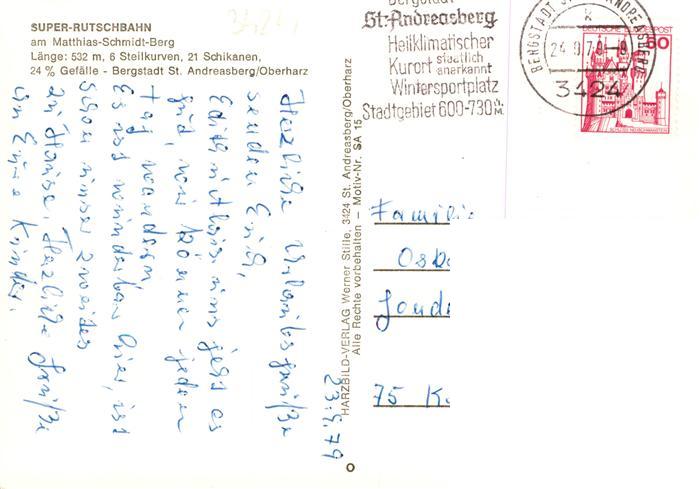 SUPER-RUTSCHBAHN
am Matthias-Schmidt-Berg
Länge: 532 m, 6 Steilkurven, 21 Schikanen,
24 % Gefälle - Bergstadt St. Andreasberg/Oberharz
Herzliche Urlaubsgrüße
senden Euch,
Edith u. Alois. uns geht es
gut, wir können jeden
Tag wandern
Es ist wunderbar hier, ist
schon unser zweites
zu Hause. Herzliche Grüße
an Eure Kinder.
23.9.79
HARZBILD-VERLAG Werner Stille, 3424 St. Andreasberg/Oberharz
Alle Rechte vorbehalten - Motiv-Nr. SA 15
Bergstadt
St. Andreasberg
Heilklimatischer
Kurort staatlich anerkannt
Wintersportplatz
Stadtgebiet 600-730 m ü. M.
BERGSTADT ST. ANDREASBERG
24.9.79-18
3424
DEUTSCHE BUNDESPOST
60
SCHLOSS NEUSCHWANSTEIN
Famili
Osk
75 K.